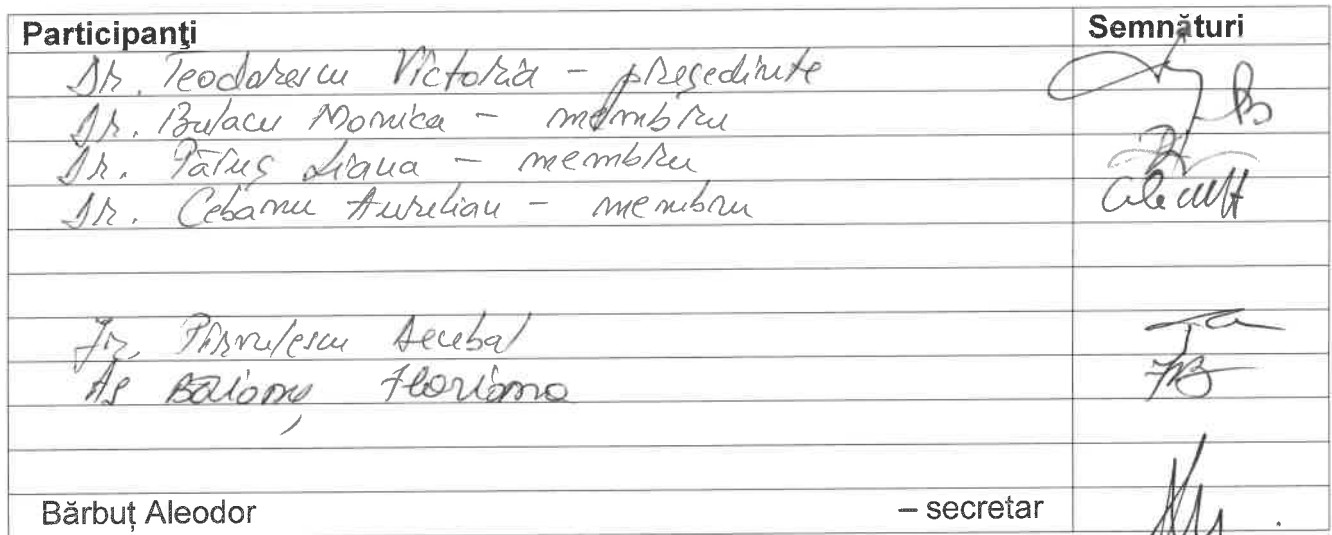 Participanţi Semnături
Dr. Teodorescu Victoria – președinte
Dr. Bulacu Monica – membru
Dr. Pătruș Liana – membru
Dr. Cebanu Aurelian – membru
Jr. Pîrvulescu Decebal
As Băloniș Floriana
Bărbuț Aleodor – secretar